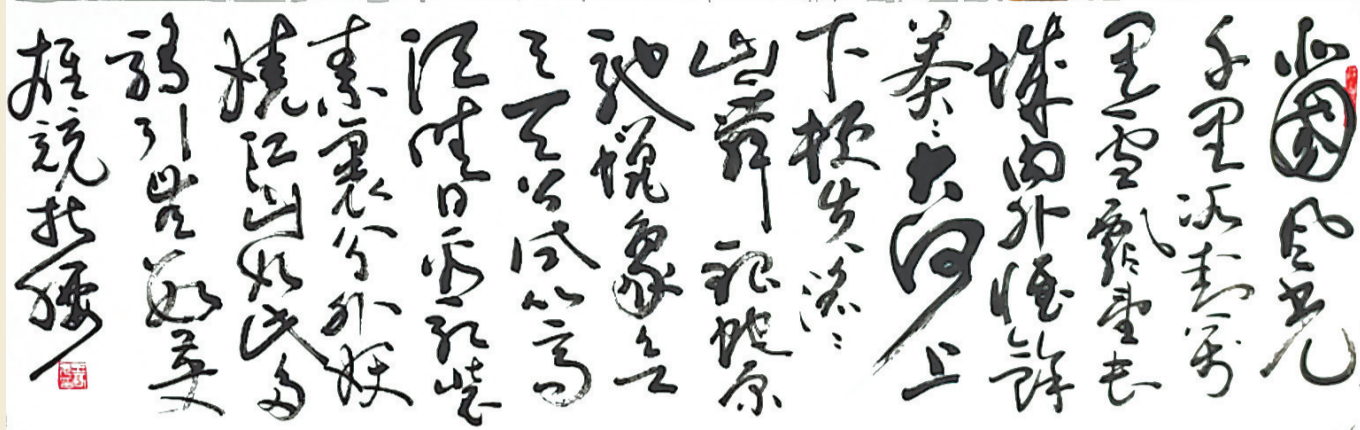 北國風光
千里冰封萬
里雪飄望長
城內外惟餘
莽莽大河上
下頓失滔滔
山舞銀蛇原
馳蠟象欲
與天公試比高
須晴日看紅裝
素裹分外妖
嬈江山如此多
嬌引無數英
雄競折腰